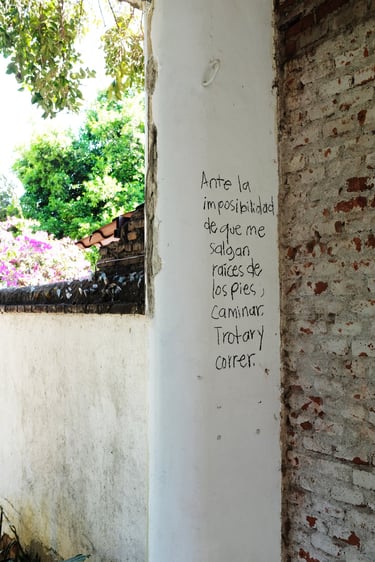 Ante la
imposibilidad
de que me
salgan
raíces de
los pies,
caminar.
Trotar y
correr.